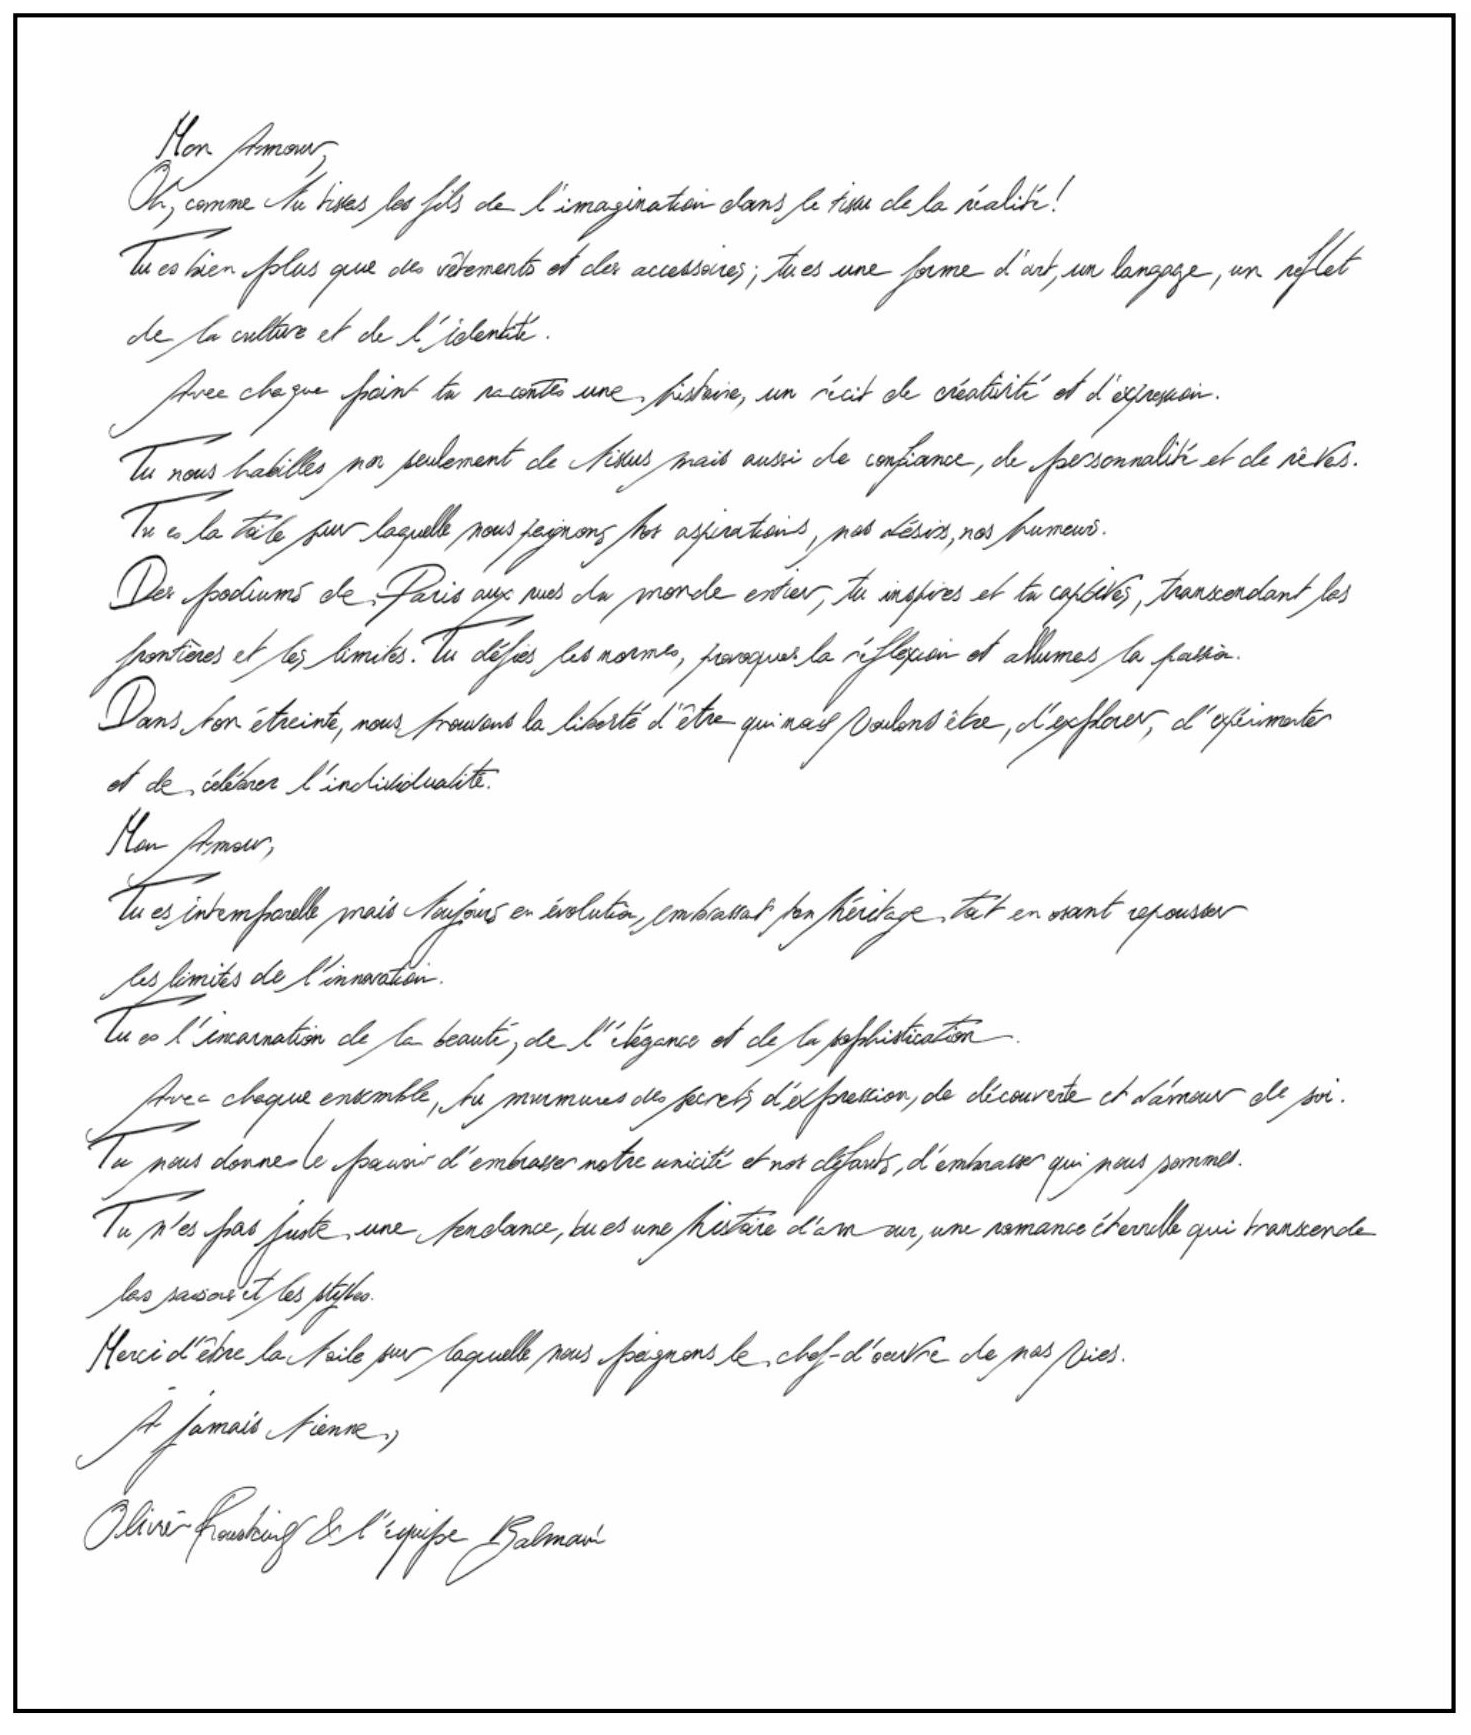 Mon Amour,
Oh, comme tu tisses les fils de l'imagination dans le tissu de la réalité!
Tu es bien plus que des vêtements et des accessoires; tu es une forme d'art, un langage, un reflet
de la culture et de l'identité.
Avec chaque point tu racontes une histoire, un récit de créativité et d'expression.
Tu nous habilles non seulement de tissus mais aussi de confiance, de personnalité et de rêves.
Tu es la toile sur laquelle nous peignons nos aspirations, nos désirs, nos humeurs.
Des podiums de Paris aux rues du monde entier, tu inspires et tu captives, transcendant les
frontières et les limites. Tu défies les normes, provoques la réflexion et allumes la passion.
Dans ton étreinte, nous trouvons la liberté d'être qui nous voulons être, d'explorer, d'expérimenter
et de célébrer l'individualité.
Mon Amour,
Tu es intemporelle mais toujours en évolution, embrassant ton héritage tout en osant repousser
les limites de l'innovation.
Tu es l'incarnation de la beauté, de l'élégance et de la sophistication.
Avec chaque ensemble, tu murmures des secrets d'expression, de découverte et d'amour de soi.
Tu nous donnes le pouvoir d'embrasser notre unicité et nos défauts, d'embrasser qui nous sommes.
Tu n'es pas juste une tendance, tu es une histoire d'amour, une romance éternelle qui transcende
les saisons et les styles.
Merci d'être la toile sur laquelle nous peignons le chef-d'oeuvre de nos vies.
À jamais tienne,
Olivier Rousteing & l'équipe Balmain